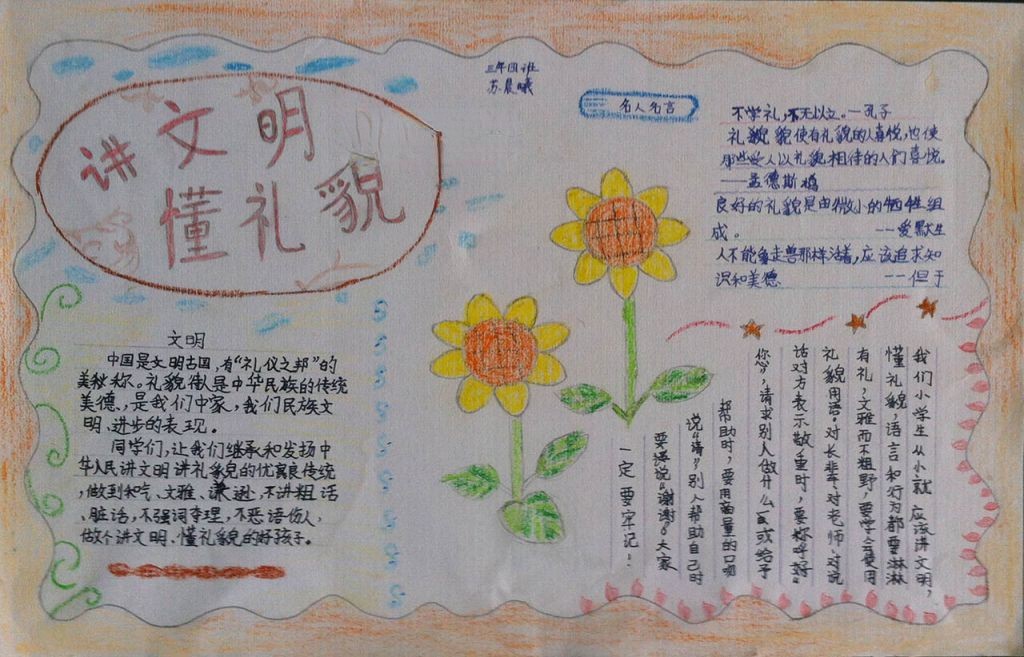 讲文明
懂礼貌
三年四班
苏晨曦
名人名言
不学礼,不无以立。—孔子
礼貌貌使有礼貌的人喜悦,也使
那些些人以礼貌相待的人们喜悦。
——孟德斯鸠
良好的礼貌是由微小的牺牲组
成。 --爱默生
人不能象走兽那样活着,应该追求知
识和美德 --但丁
文明
中国是文明古国,有“礼仪之邦”的
美称。礼貌待人是中华民族的传统
美德,是我们中家,我们民族文
明、进步的表现。
同学们,让我们继承和发扬中
华人民讲文明讲礼貌的优良传统
,做到和气、文雅、谦逊,不讲粗话
、脏话,不强词夺理,不恶语伤人,
做个讲文明、懂礼貌的好孩子。
我们小学生从小就应该讲文明,
懂礼貌,语言和行为都要彬彬
有礼,文雅而不粗野,要学会使用
礼貌用语。对长辈、对老师、对说
话对方表示敬重时,要称呼“
您”,请求别人做什么或给予
帮助时,要用商量的口吻
说“请”别人帮助自己时
要说“谢谢”大家
一定要牢记: